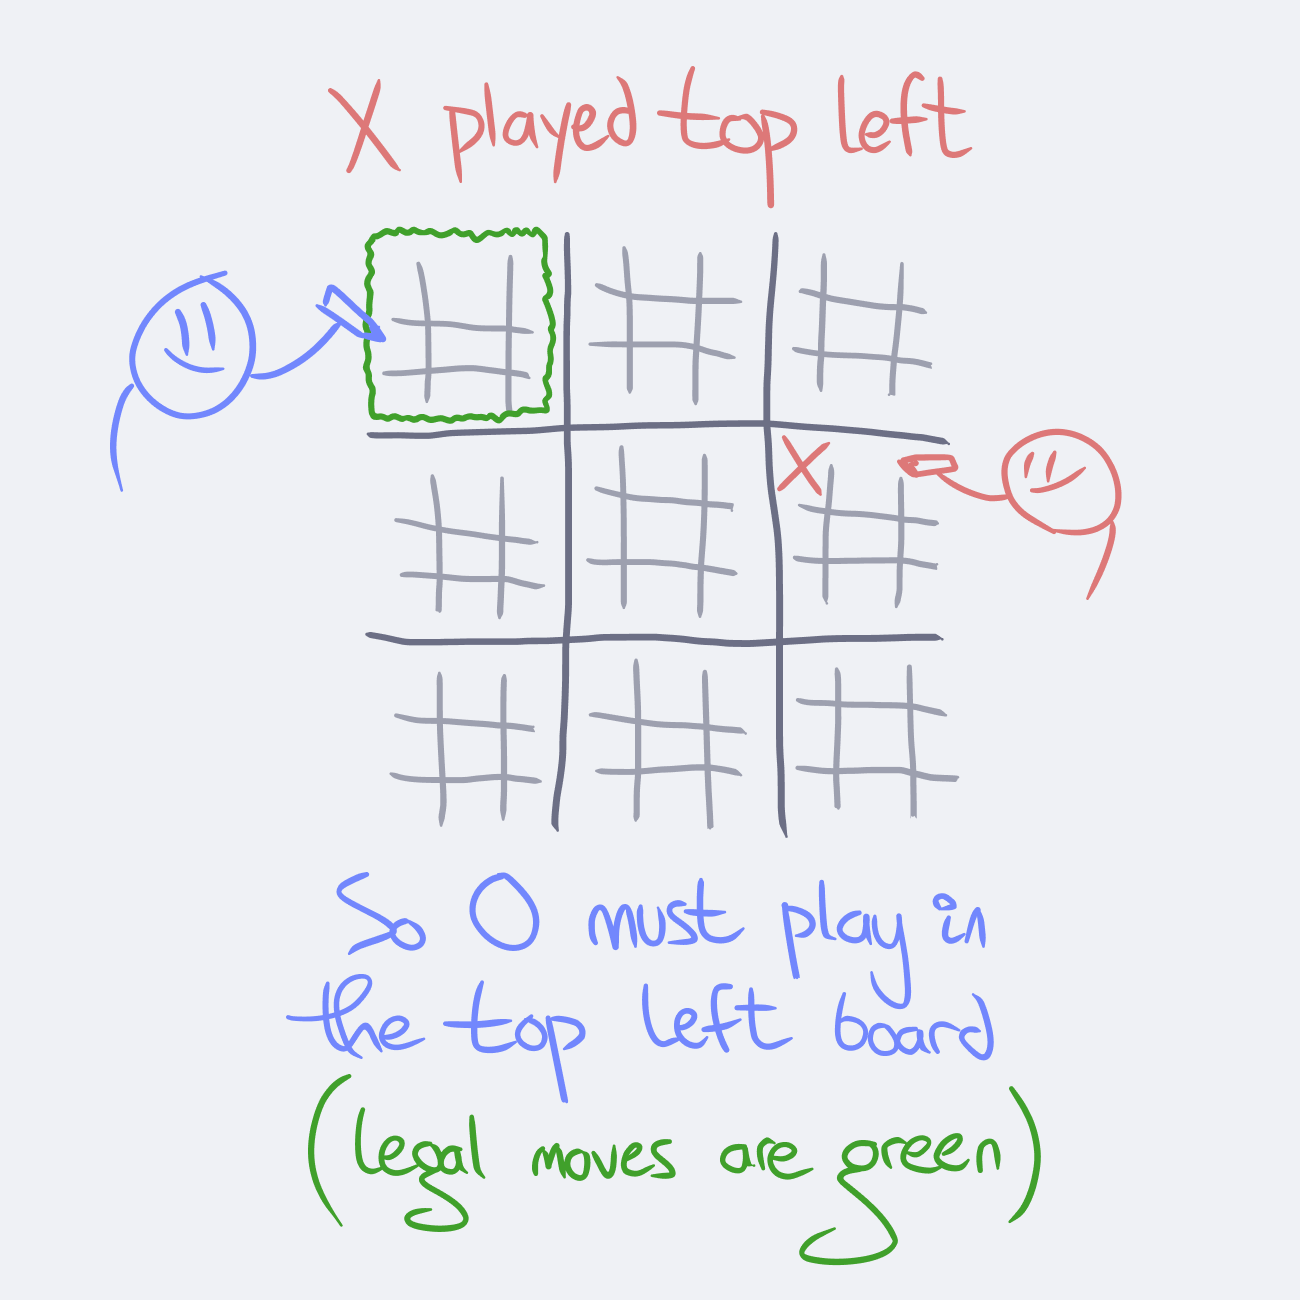 X played top left
X
So O must play in
the top left board
(legal moves are green)